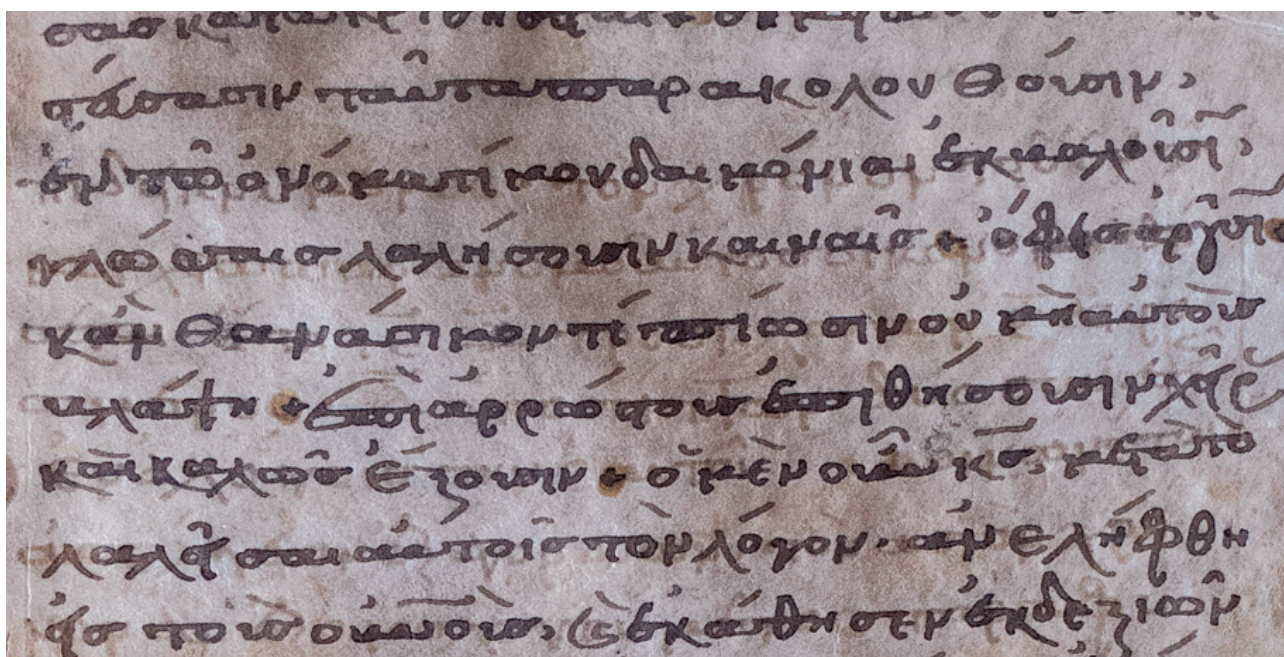 στεύσασιν ταῦτα παρακολουθούσιν,
ἐν τῶ ὀνόματί μου δαιμόνια ἐκβαλοῦσι,
γλώσσαις λαλήσουσιν καιναῖς· ὄφεις ἀροῦσι
κἂν θανάσιμόν τι πίωσιν οὐ μὴ αὐτοὺς
βλάψη· ἐπὶ ἀρρώστους ἐπιθήσουσιν χεῖρ
καὶ καλῶς ἕξουσιν· ὁ μὲν οὖν κς, μετὰ τὸ
λαλῆσαι αὐτοῖς τὸν λόγον· ἀνελήφθη
εἰς τοὺς οὐνοὺς, καὶ ἐκάθησεν ἐκ δεξιῶν